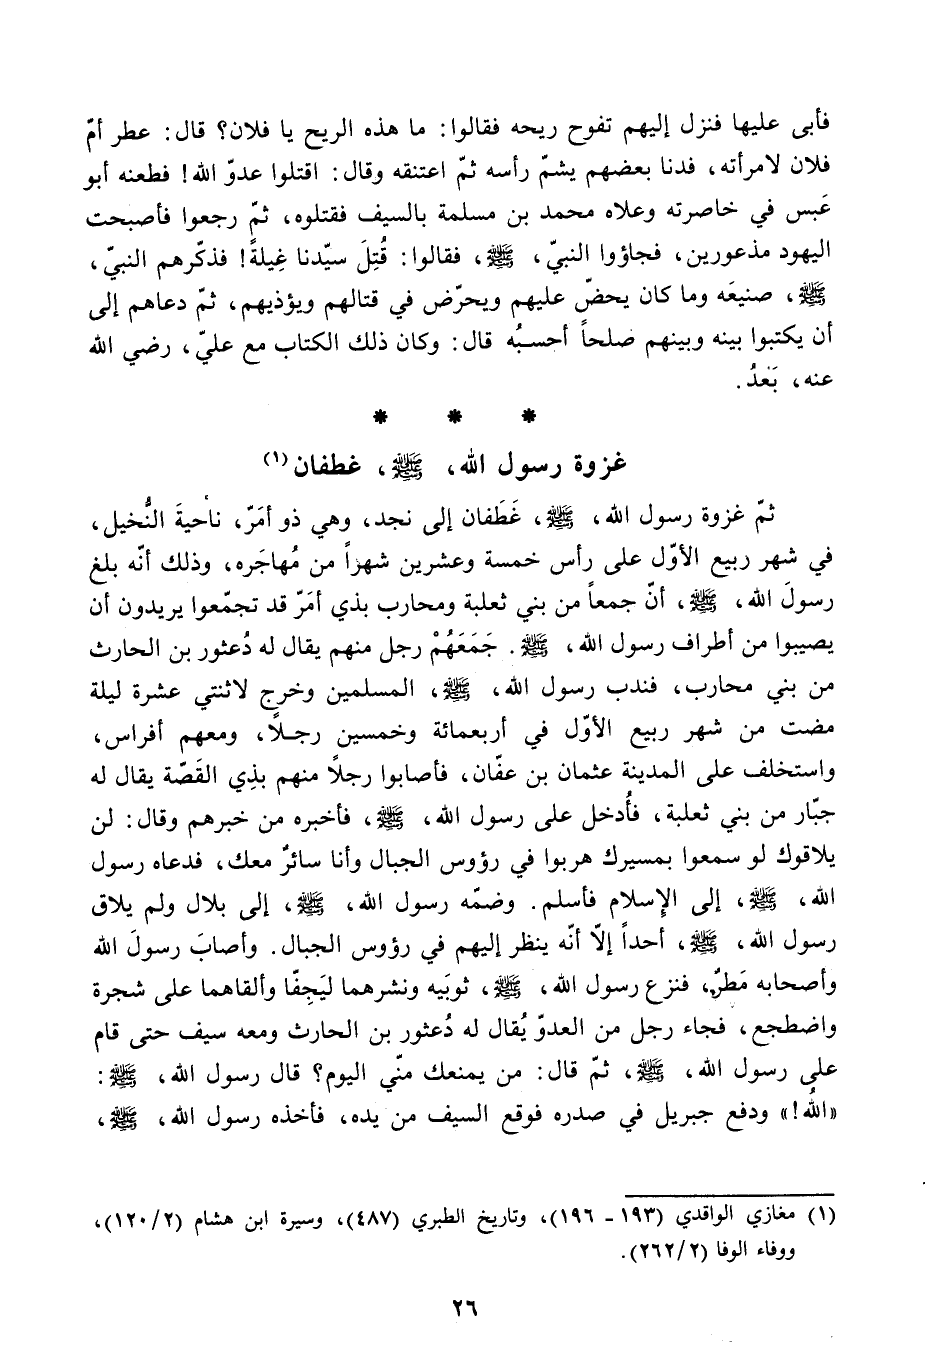 فأبى عليها فنزل إليهم تفوح ريحه فقالوا: ما هذه الريح يا فلان؟ قال: عطر أمّ
فلان لامرأته، فدنا بعضهم يشمّ رأسه ثمّ اعتنقه وقال: اقتلوا عدوّ الله! فطعنه أبو
عَبس في خاصرته وعلاه محمد بن مسلمة بالسيف فقتلوه، ثمّ رجعوا فأصبحت
اليهود مذعورين، فجاؤوا النبيّ، ﷺ، فقالوا: قُتِلَ سيّدنا غِيلةً! فذكّرهم النبيّ،
ﷺ، صنيعَه وما كان يحضّ عليهم ويحرّض في قتالهم ويؤذيهم، ثمّ دعاهم إلى
أن يكتبوا بينه وبينهم صلحاً أحسبُه قال: وكان ذلك الكتاب مع عليّ، رضي الله
عنه، بَعْدُ.
* * *
غزوة رسول الله، ﷺ، غطفان(١)
ثمّ غزوة رسول الله، ﷺ، غَطَفان إلى نجد، وهي ذو أمَرّ، ناحيةَ النُّخيل،
في شهر ربيع الأوّل على رأس خمسة وعشرين شهراً من مُهاجَره، وذلك أنّه بلغ
رسولَ الله، ﷺ، أنّ جمعاً من بني ثعلبة ومحارب بذي أمَرّ قد تجمّعوا يريدون أن
يصيبوا من أطراف رسول الله، ﷺ. جَمَعَهُمْ رجل منهم يقال له دُعثور بن الحارث
من بني محارب، فندب رسول الله، ﷺ، المسلمين وخرج لاثنتي عشرة ليلة
مضت من شهر ربيع الأوّل في أربعمائة وخمسين رجلاً، ومعهم أفراس،
واستخلف على المدينة عثمان بن عفّان، فأصابوا رجلاً منهم بذِي القَصّة يقال له
جبّار من بني ثعلبة، فأُدخل على رسول الله، ﷺ، فأخبره من خبرهم وقال: لن
يلاقوك لو سمعوا بمسيرك هربوا في رؤوس الجبال وأنا سائرٌ معك، فدعاه رسول
الله، ﷺ، إلى الإسلام فأسلم. وضمّه رسول الله، ﷺ، إلى بلال ولم يلاق
رسول الله، ﷺ، أحداً إلّا أنّه ينظر إليهم في رؤوس الجبال. وأصابَ رسولَ الله
وأصحابه مَطرٌ، فنزع رسول الله، ﷺ، ثوبَيه ونشرهما ليَجِفّا وألقاهما على شجرة
واضطجع، فجاء رجل من العدوّ يُقال له دُعثور بن الحارث ومعه سيف حتى قام
على رسول الله، ﷺ، ثمّ قال: من يمنعك منّي اليوم؟ قال رسول الله، ﷺ:
«اللهُ!» ودفع جبريل في صدره فوقع السيف من يده، فأخذه رسول الله، ﷺ،
(١) مغازي الواقدي (١٩٣ - ١٩٦)، وتاريخ الطبري (٤٨٧)، وسيرة ابن هشام (١٢٠/٢)،
ووفاء الوفا (٢٦٢/٢).
٢٦